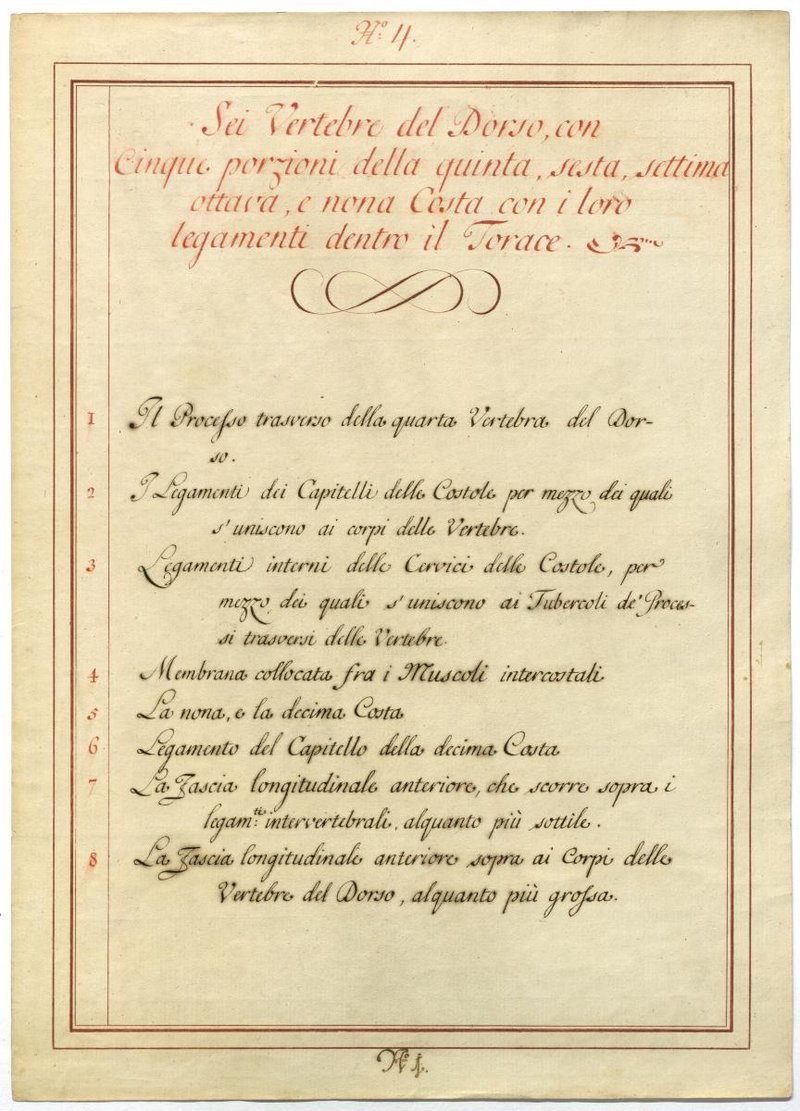 N.º 4.
Sei Vertebre del Dorso, con
Cinque porzioni della quinta, sesta, settima
ottava, e nona Costa con i loro
legamenti dentro il Torace.
1 Il Processo trasverso della quarta Vertebra del Dor-
so.
2 I Legamenti dei Capitelli delle Costole per mezzo dei quali
s'uniscono ai corpi delle Vertebre.
3 Legamenti interni delle Cervici delle Costole, per
mezzo dei quali s'uniscono ai Tubercoli de' Proces-
si trasversi delle Vertebre.
4 Membrana collocata fra i Muscoli intercostali
5 La nona, e la decima Costa
6 Legamento del Capitello della decima Costa
7 La Fascia longitudinale anteriore, che scorre sopra i
legam.ti intervertebrali, alquanto più sottile.
8 La Fascia longitudinale anteriore sopra ai Corpi delle
Vertebre del Dorso, alquanto più grossa.